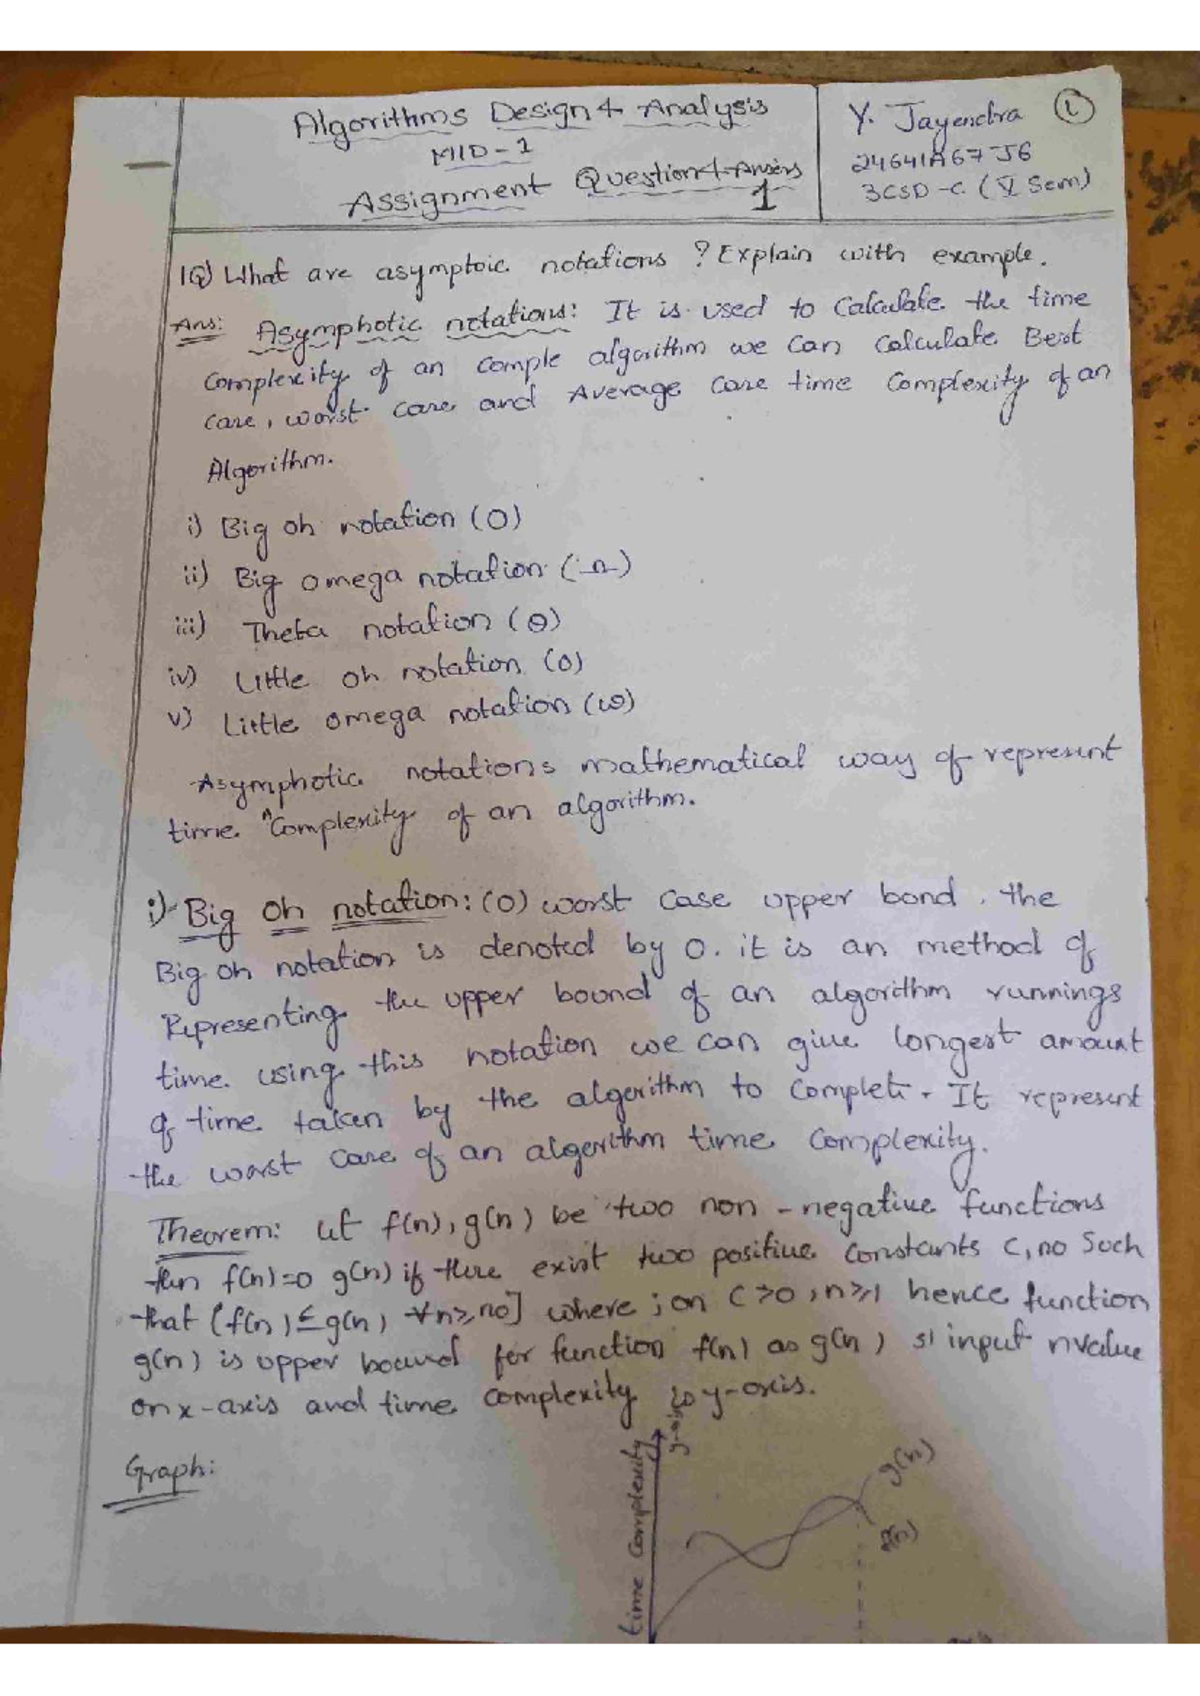 Algorithms Design & Analysis
MID-1
Assignment Question & Answers
1
Y. Jayendra
1
24641A67J6
3CSD-C (V Sem)
1Q) What are asymptoic notations ? Explain with example.
Ans: Asymphotic notations: It is used to Calculate the time
complexity of an comple algorithm we can calculate Best
case, worst case and Average case time complexity of an
Algorithm.
i) Big oh notation (O)
ii) Big omega notation (Ω)
iii) Theta notation (θ)
iv) Little oh notation (o)
v) Little omega notation (ω)
Asymphotic notations mathematical way of represent
time complexity of an algorithm.
i) Big oh notation: (O) worst case upper bond. the
Big oh notation is denoted by O. it is an method of
Representing the upper bound of an algorithm runnings
time. using this notation we can give longest amount
of time taken by the algorithm to complete. It represent
the worst case of an algorithm time complexity.
Theorem: let f(n), g(n) be two non-negative functions
then f(n)=o g(n) if there exist two positive constants c, no Such
that [f(n) ≤ g(n) ∀n≥no] where ; on C>0, n≥1 hence function
g(n) is upper bound for function f(n) as g(n) input n value
on x-axis and time complexity y-axis.
Graph:
time complexity
y-axis
g(n)
f(n)